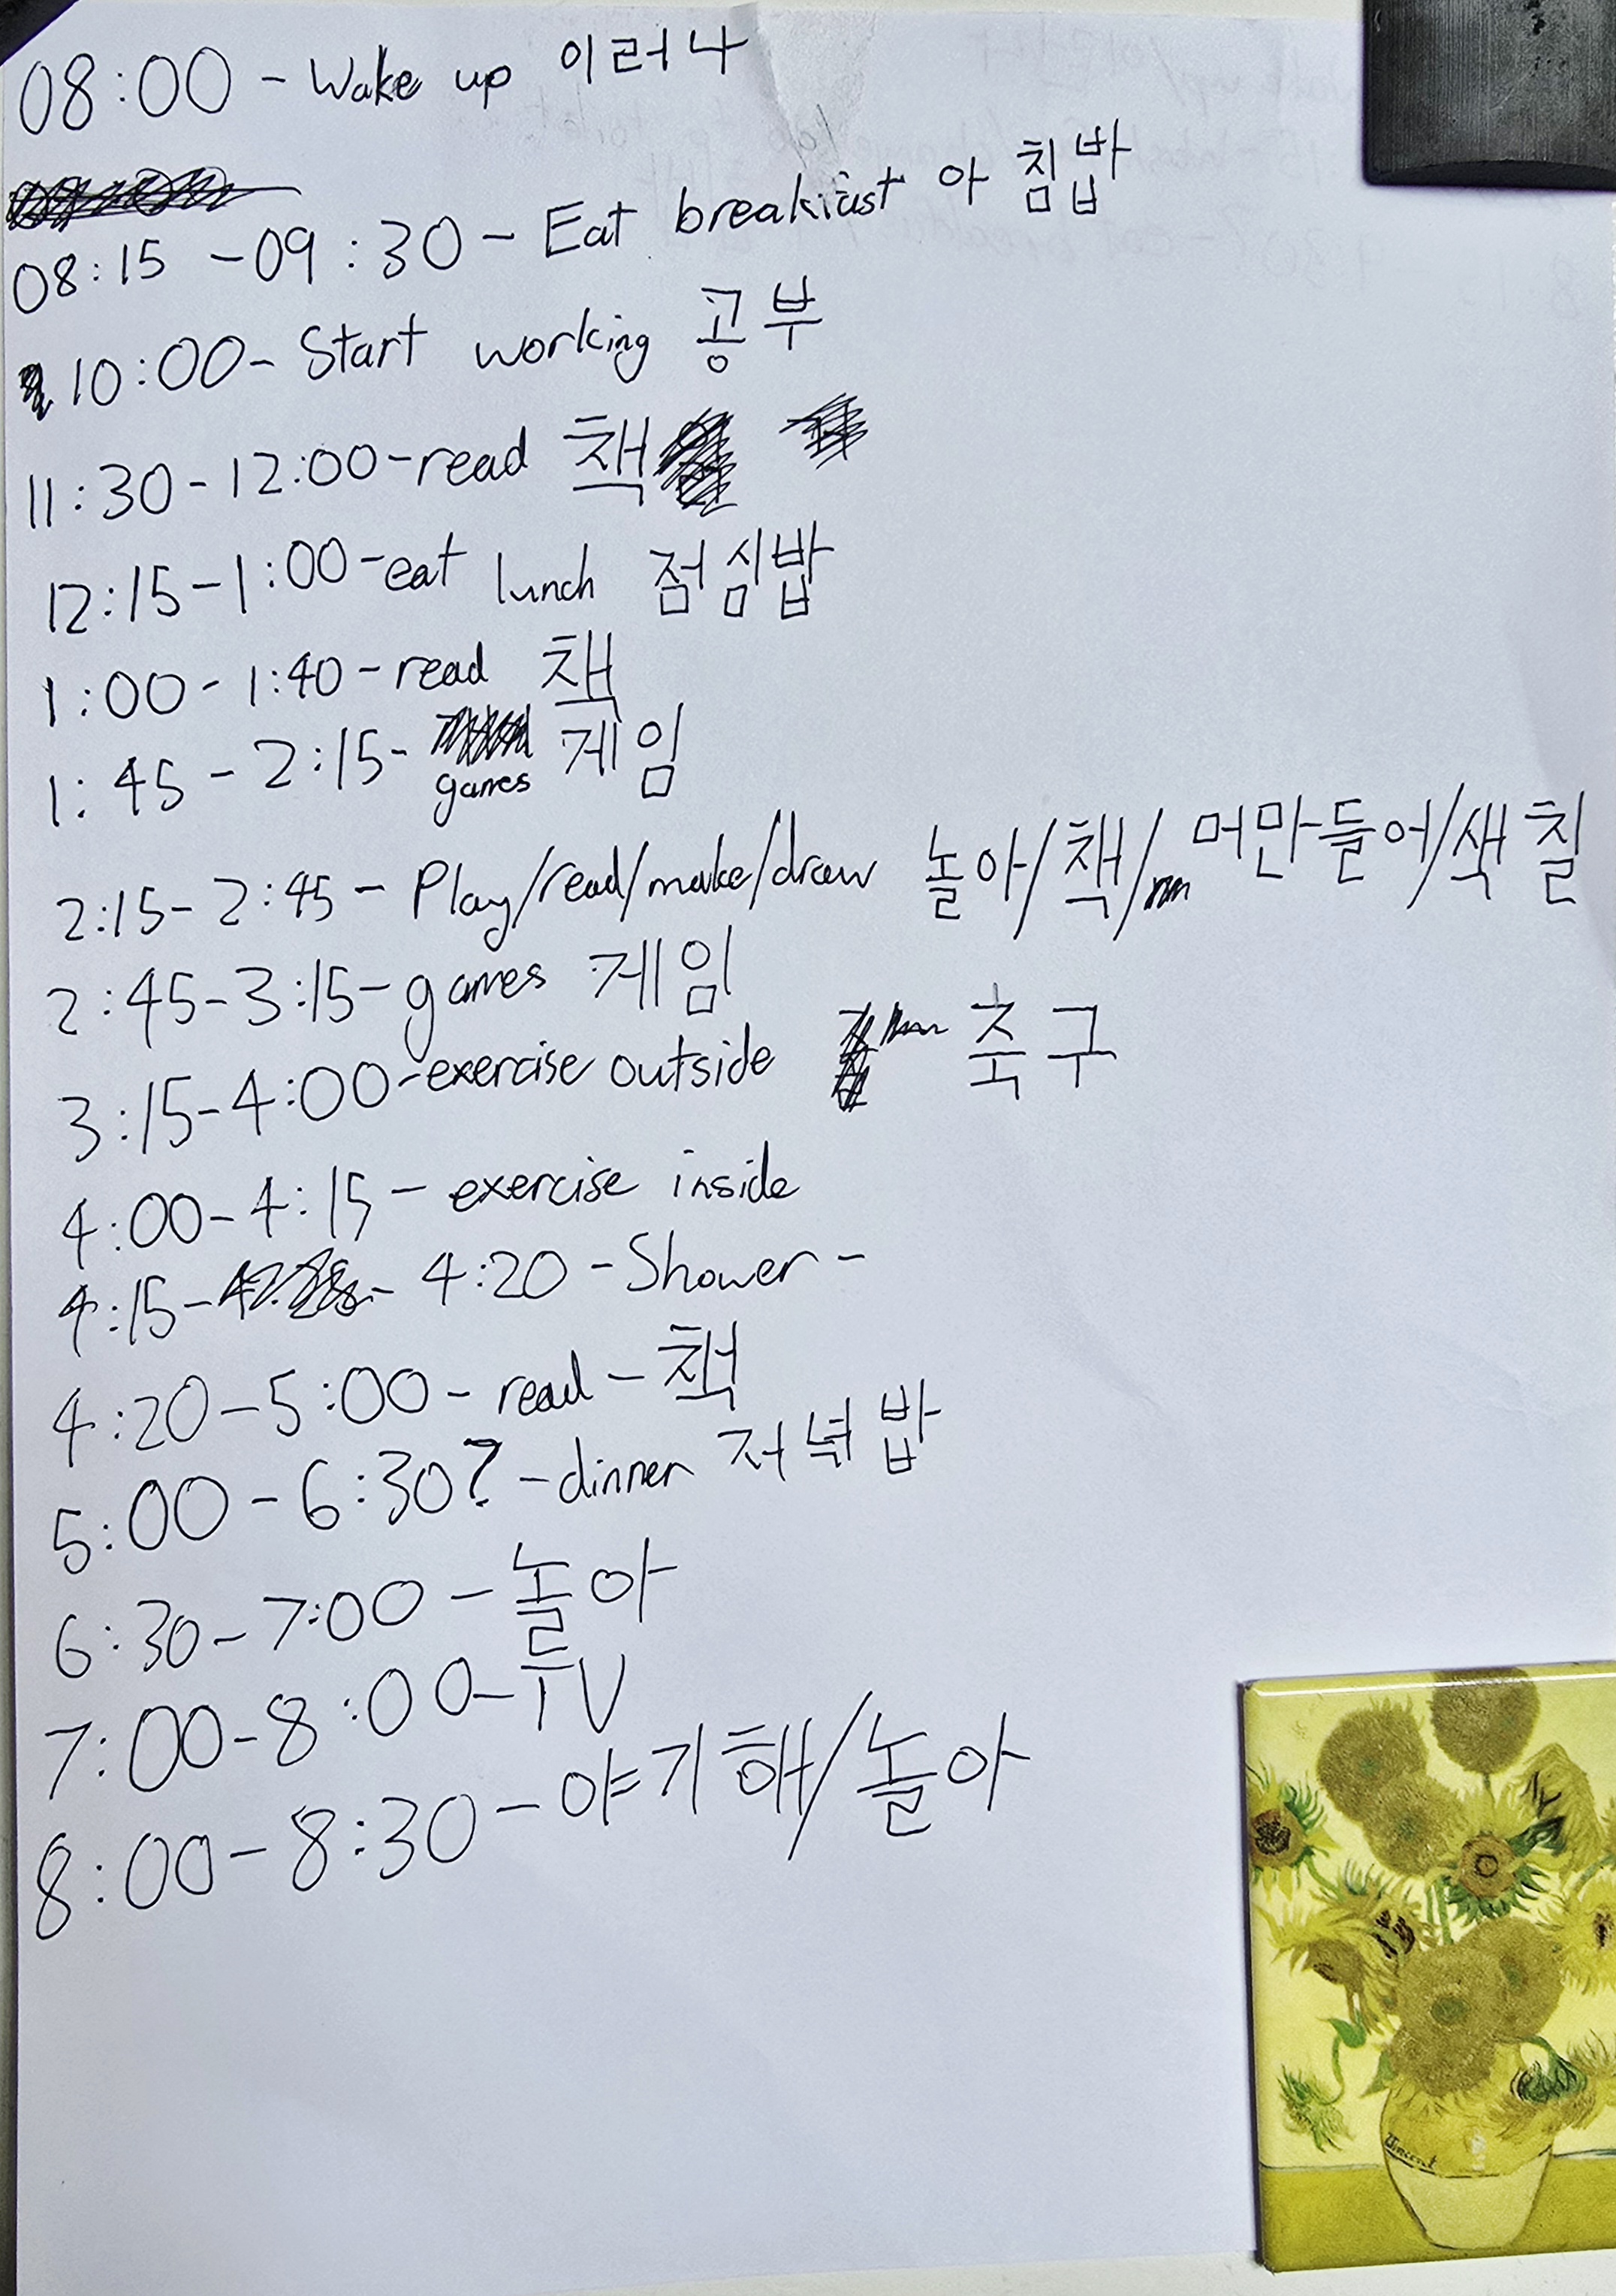 08:00 - Wake up 이러나
08:15 - 09:30 - Eat breakfast 아침밥
10:00 - Start working 공부
11:30 - 12:00 - read 책
12:15 - 1:00 - eat lunch 점심밥
1:00 - 1:40 - read 책
1:45 - 2:15 - games 게임
2:15 - 2:45 - Play/read/make/draw 놀아/책/머만들어/색칠
2:45 - 3:15 - games 게임
3:15 - 4:00 - exercise outside 축구
4:00 - 4:15 - exercise inside
4:15 - 4:20 - Shower -
4:20 - 5:00 - read - 책
5:00 - 6:30? - dinner 저녁밥
6:30 - 7:00 - 놀아
7:00 - 8:00 - TV
8:00 - 8:30 - 야기해/놀아
Vincent